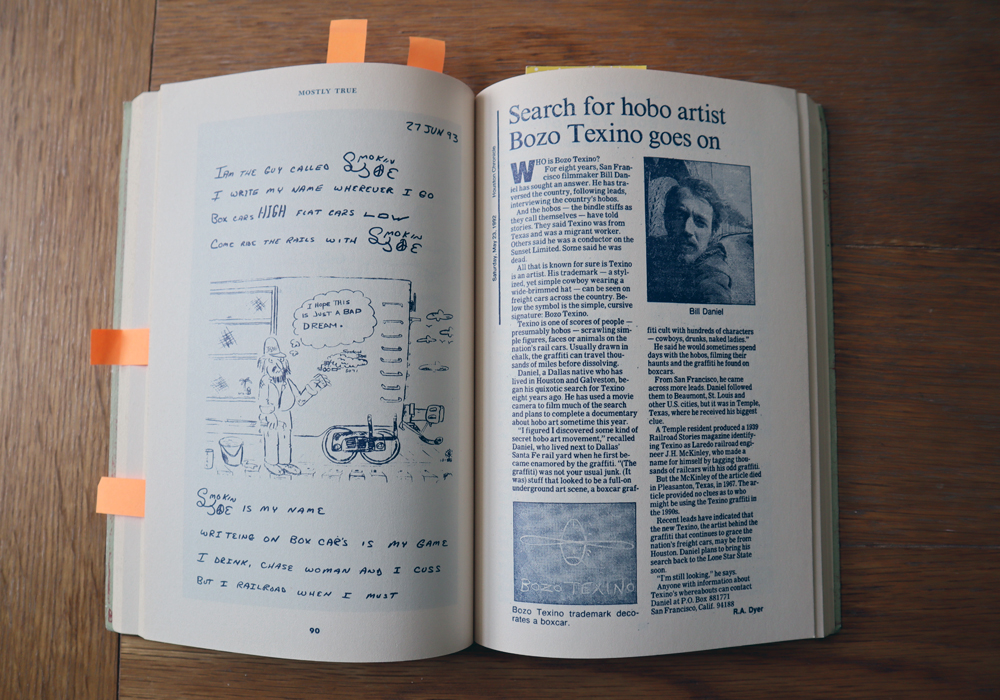 MOSTLY TRUE
27 JUN 93
I AM THE GUY CALLED SMOKIN JOE
I WRITE MY NAME WHEREVER I GO
BOX CARS HIGH FLAT CARS LOW
COME RAE THE RAILS WITH SMOKIN JOE
I HOPE THIS
IS JUST A BAD
DREAM.
SMOKIN JOE IS MY NAME
WRITEING ON BOX CAR'S IS MY GAME
I DRINK, CHASE WOMAN AND I CUSS
BUT I RAILROAD WHEN I MUST
90
Saturday, May 23, 1992 Houston Chronicle
Search for hobo artist
Bozo Texino goes on
WHO is Bozo Texino?
For eight years, San Fran-
cisco filmmaker Bill Dan-
iel has sought an answer. He has tra-
versed the country, following leads,
interviewing the country's hobos.
And the hobos — the bindle stiffs as
they call themselves — have told
stories. They said Texino was from
Texas and was a migrant worker.
Others said he was a conductor on the
Sunset Limited. Some said he was
dead.
All that is known for sure is Texino
is an artist. His trademark — a styl-
ized, yet simple cowboy wearing a
wide-brimmed hat — can be seen on
freight cars across the country. Be-
low the symbol is the simple, cursive
signature: Bozo Texino.
Texino is one of scores of people —
presumably hobos — scrawling sim-
ple figures, faces or animals on the
nation's rail cars. Usually drawn in
chalk, the graffiti can travel thou-
sands of miles before dissolving.
Daniel, a Dallas native who has
lived in Houston and Galveston, be-
gan his quixotic search for Texino
eight years ago. He has used a movie
camera to film much of the search
and plans to complete a documentary
about hobo artist sometime this year.
"I figured I discovered some kind of
secret hobo art movement," recalled
Daniel, who lived next to Dallas'
Santa Fe rail yard when he first be-
came enamored by the graffiti. "(The
graffiti) was not your usual junk. (It
was) stuff that looked to be a full-on
underground art scene, a boxcar graf-
BOZO TEXINO
Bozo Texino trademark deco-
rates a boxcar.
Bill Daniel
fiti cult with hundreds of characters
— cowboys, drunks, naked ladies."
He said he would sometimes spend
days with the hobos, filming their
haunts and the graffiti he found on
boxcars.
From San Francisco, he came
across more leads. Daniel followed
them to Beaumont, St. Louis and
other U.S. cities, but it was in Temple,
Texas, where he received his biggest
clue.
A Temple resident produced a 1939
Railroad Stories magazine identify-
ing Texino as Laredo railroad engi-
neer J.H. McKinley, who made a
name for himself by tagging thou-
sands of railcars with his odd graffiti.
But the McKinley of the article died
in Pleasanton, Texas, in 1967. The ar-
ticle provided no clues as to who
might be using the Texino graffiti in
the 1990s.
Recent leads have indicated that
the new Texino, the artist behind the
graffiti that continues to grace the
nation's freight cars, may be from
Houston. Daniel plans to bring his
search back to the Lone Star State
soon.
"I'm still looking," he says.
Anyone with information about
Texino's whereabouts can contact
Daniel at P.O. Box 881771
San Francisco, Calif. 94188
R.A. Dyer